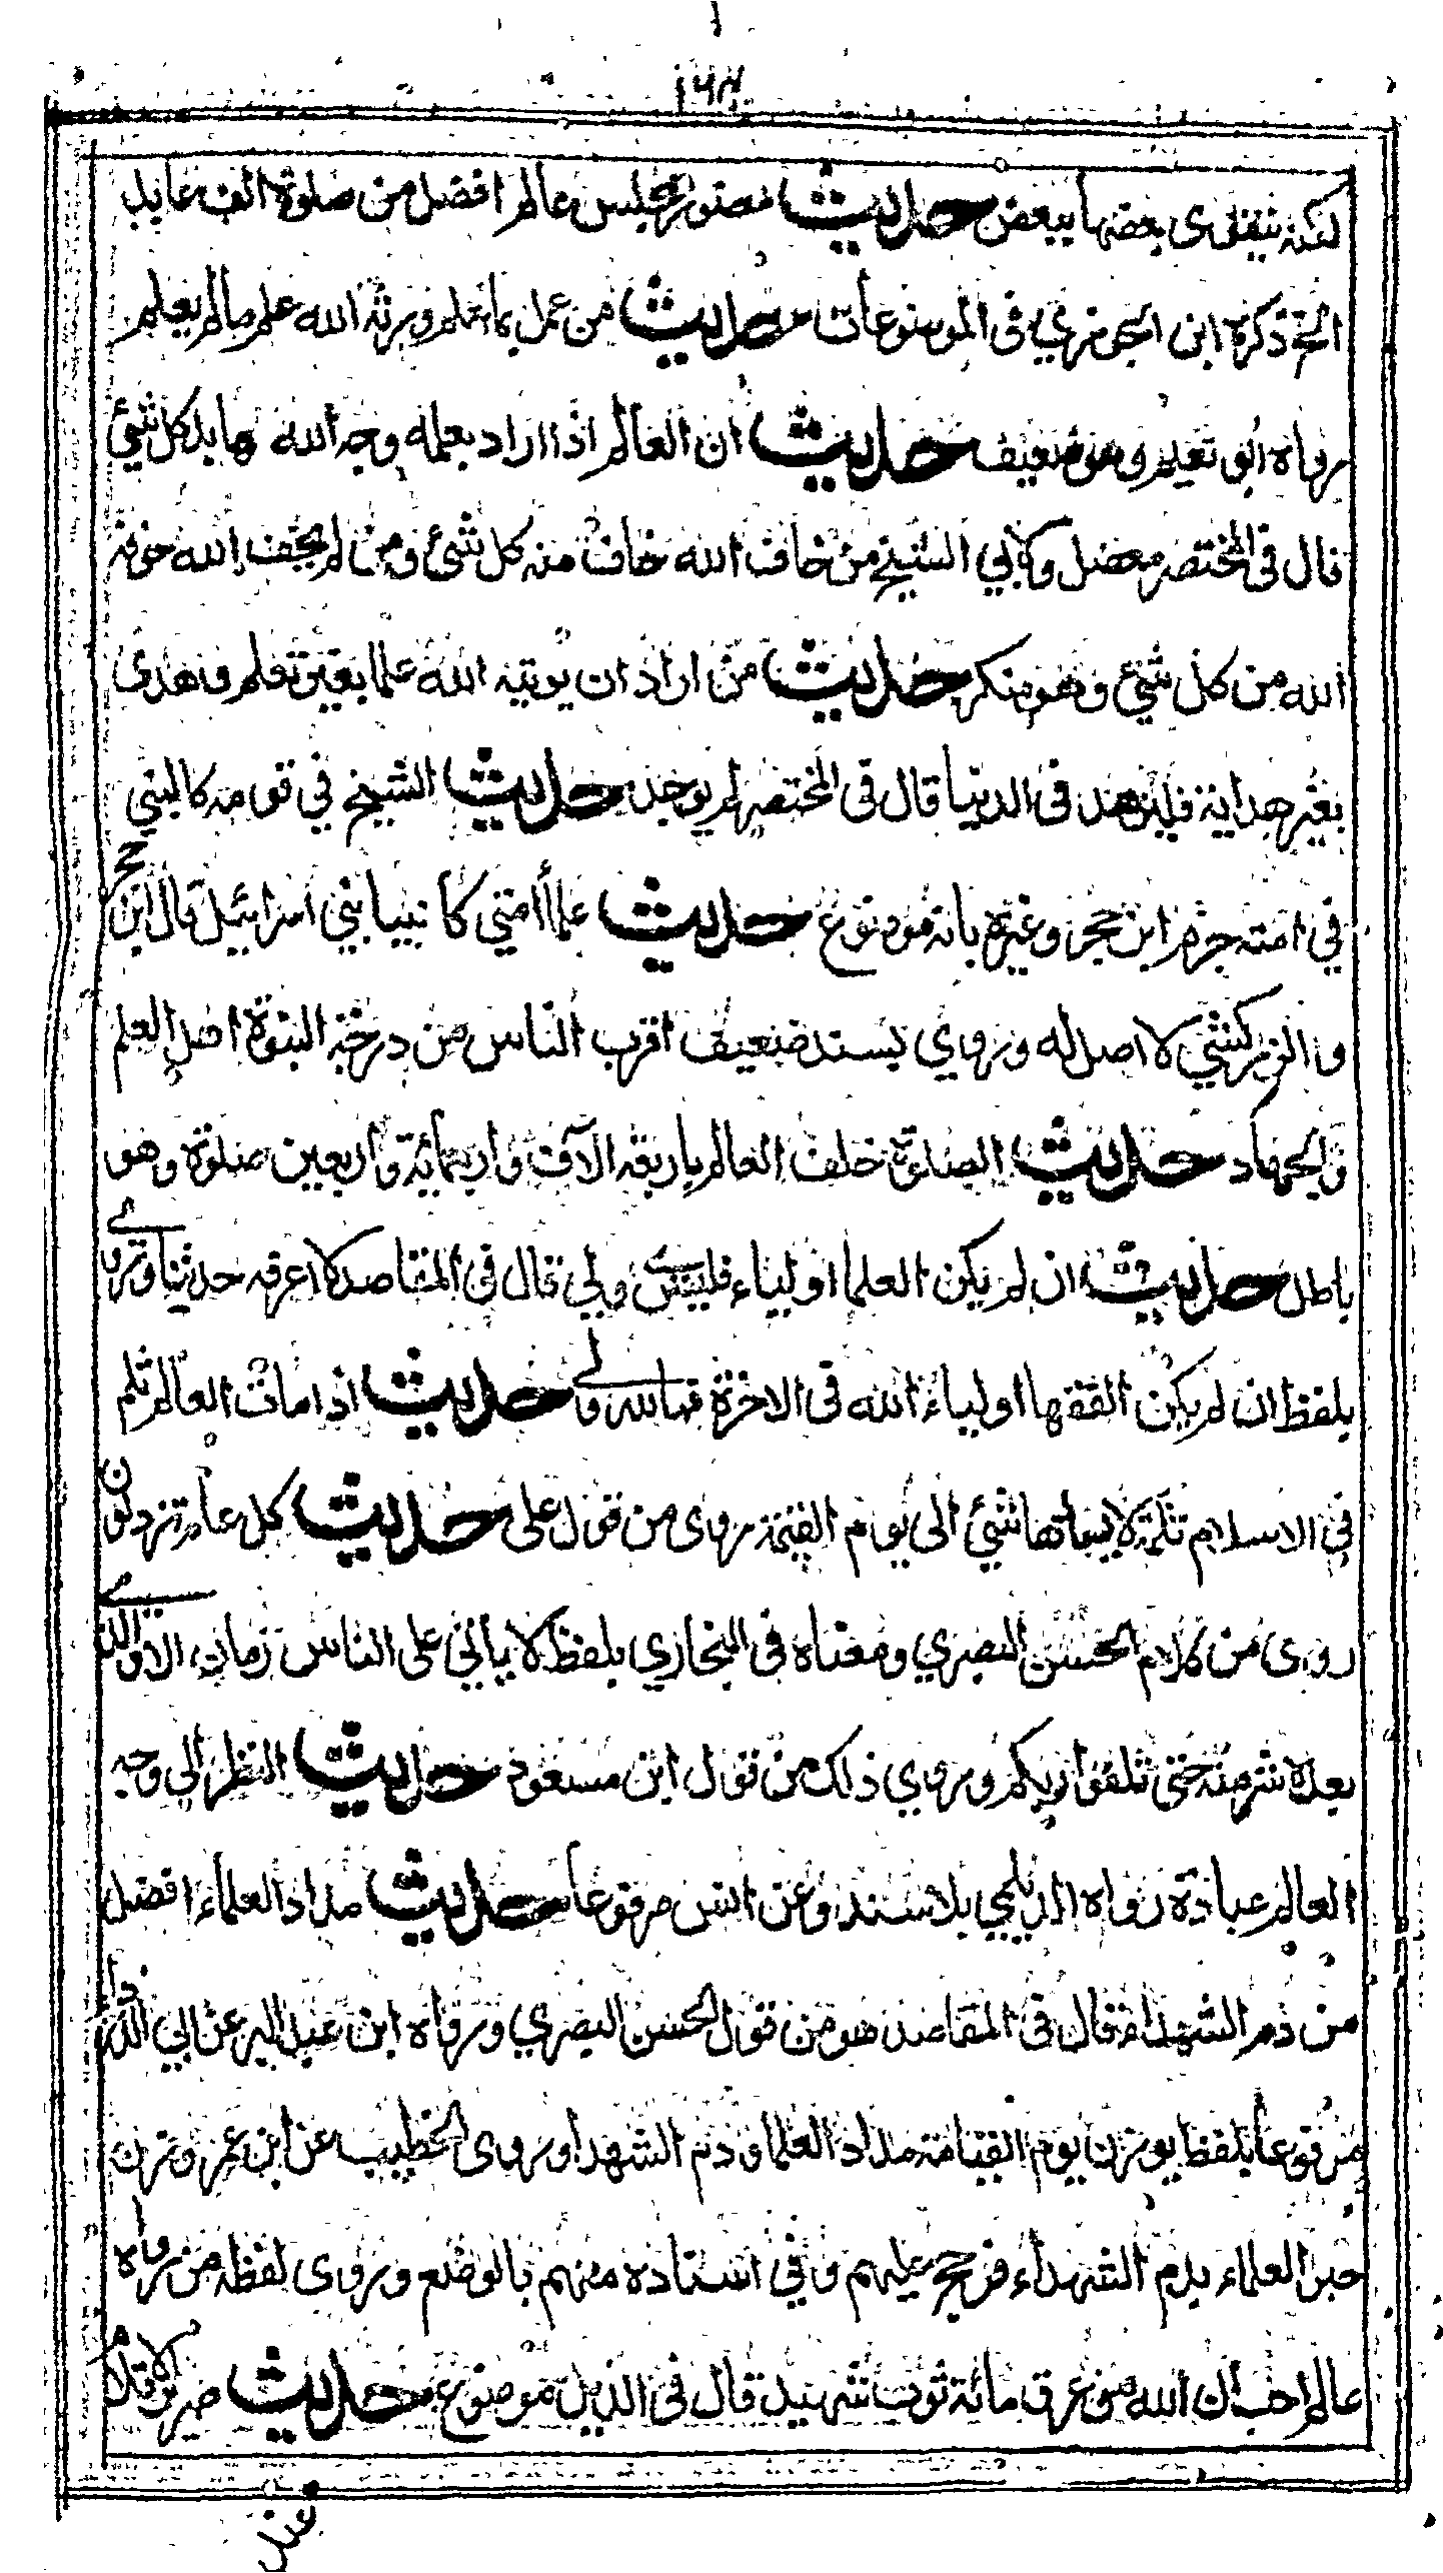 ١٦٢
لكنه يتقوى بعضها ببعض حديث حضور مجلس عالم افضل من صلوة الف عابد
الخ ذكره ابن الجوزي في الموضوعات حديث من عمل بما علم ورثه الله علم ما لم يعلم
رواه ابو نعيم وهو ضعيف حديث ان العالم اذا اراد بعلمه وجه الله هابه كل شئ
قال في المختصر معضل ولابي الشيخ من خاف الله خاف منه كل شئ ومن لم يخف الله خوفه
الله من كل شئ وهو منكر حديث من اراد ان يوتيه الله علما بغير تعلم وهدى
بغير هداية فليزهد في الدنيا قال في المختصر لم يوجد حديث الشيخ في قومه كالنبي
في امته جزم ابن حجر وغيره بانه موضوع حديث علماء امتي كانبياء بني اسرائيل قال ابن حجر
والزركشي لا اصل له وروي بسند ضعيف اقرب الناس من درجة النبوة اهل العلم
والجهاد حديث الصلوة خلف العالم باربعة الاف واربعمائة واربعين صلوة وهو
باطل حديث ان لم يكن العلما اولياء فليس لي ولي قال في المقاصد لا اعرفه حديثا وروي
بلفظ ان لم يكن الفقها اولياء الله في الاخرة فما لله ولي حديث اذا مات العالم ثلم
في الاسلام ثلمة لا يسدها شئ الى يوم القيمة روى من قول على حديث كل عام ترذلون
روى من كلام الحسن البصري ومعناه في البخاري بلفظ لا ياتي على الناس زمان الا والذي
بعده شر منه حتى تلقوا ربكم وروي ذلك من قول ابن مسعود حديث النظر الى وجه
العالم عبادة رواه الديلمي بلا سند وعن انس مرفوعا حديث مداد العلماء افضل
من دم الشهداء قال في المقاصد هو من قول الحسن البصري ورواه ابن عبد البر عن ابي الدرداء
مرفوعا بلفظ يوزن يوم القيامة مداد العلما ودم الشهدا وروى الخطيب عن ابن عمر وزن
حبر العلماء بدم الشهداء فرجح عليهم وفي اسناده متهم بالوضع وروى لفظه من رواه
عالم احب الى الله من عرق مائة ثوب شهيد قال في الذيل موضوع حديث صرير الاقلام
عند